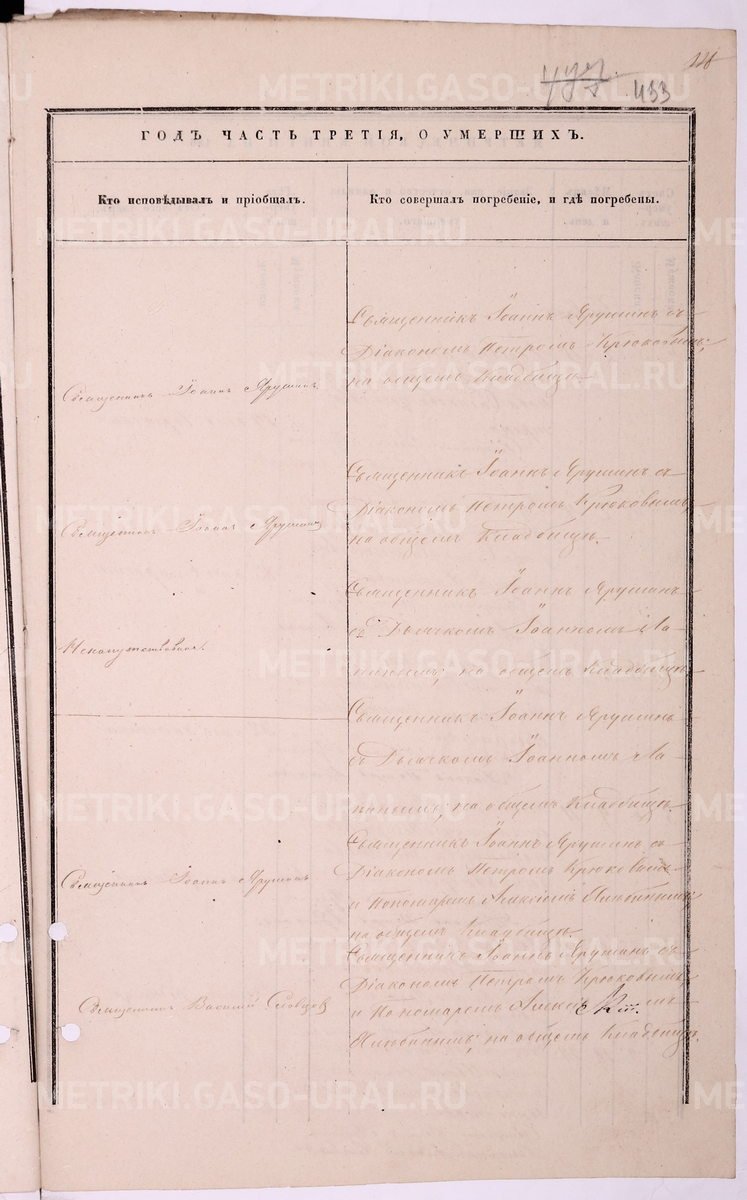 118
433
ГОДЪ ЧАСТЬ ТРЕТІЯ, О УМЕРШИХЪ.
Кто исповѣдывалъ и пріобщалъ.
Кто совершалъ погребеніе, и гдѣ погребены.
Священникъ Іоаннъ Ярушинъ съ
Діакономъ Петромъ Крюковымъ,
на общемъ Кладбищѣ.
Священникъ Іоаннъ Ярушинъ
Священникъ Іоаннъ Ярушинъ съ
Діакономъ Петромъ Крюковымъ,
на общемъ Кладбищѣ.
Священникъ Іоаннъ Ярушинъ
Священникъ Іоаннъ Ярушинъ
съ Дьячкомъ Іоанномъ
на общемъ Кладбищѣ
Священникъ Іоаннъ Ярушинъ
съ Дьячкомъ Іоанномъ
на общемъ Кладбищѣ.
Священникъ Іоаннъ Ярушинъ съ
Діакономъ Петромъ Крюковымъ
и Пономаремъ
на общемъ Кладбищѣ.
Священникъ Іоаннъ Ярушинъ
Священникъ Іоаннъ Ярушинъ съ
Діакономъ Петромъ Крюковымъ
и Пономаремъ
на общемъ Кладбищѣ.
Священникъ Василій Словцовъ
METRIKI.GASO-URAL.RU